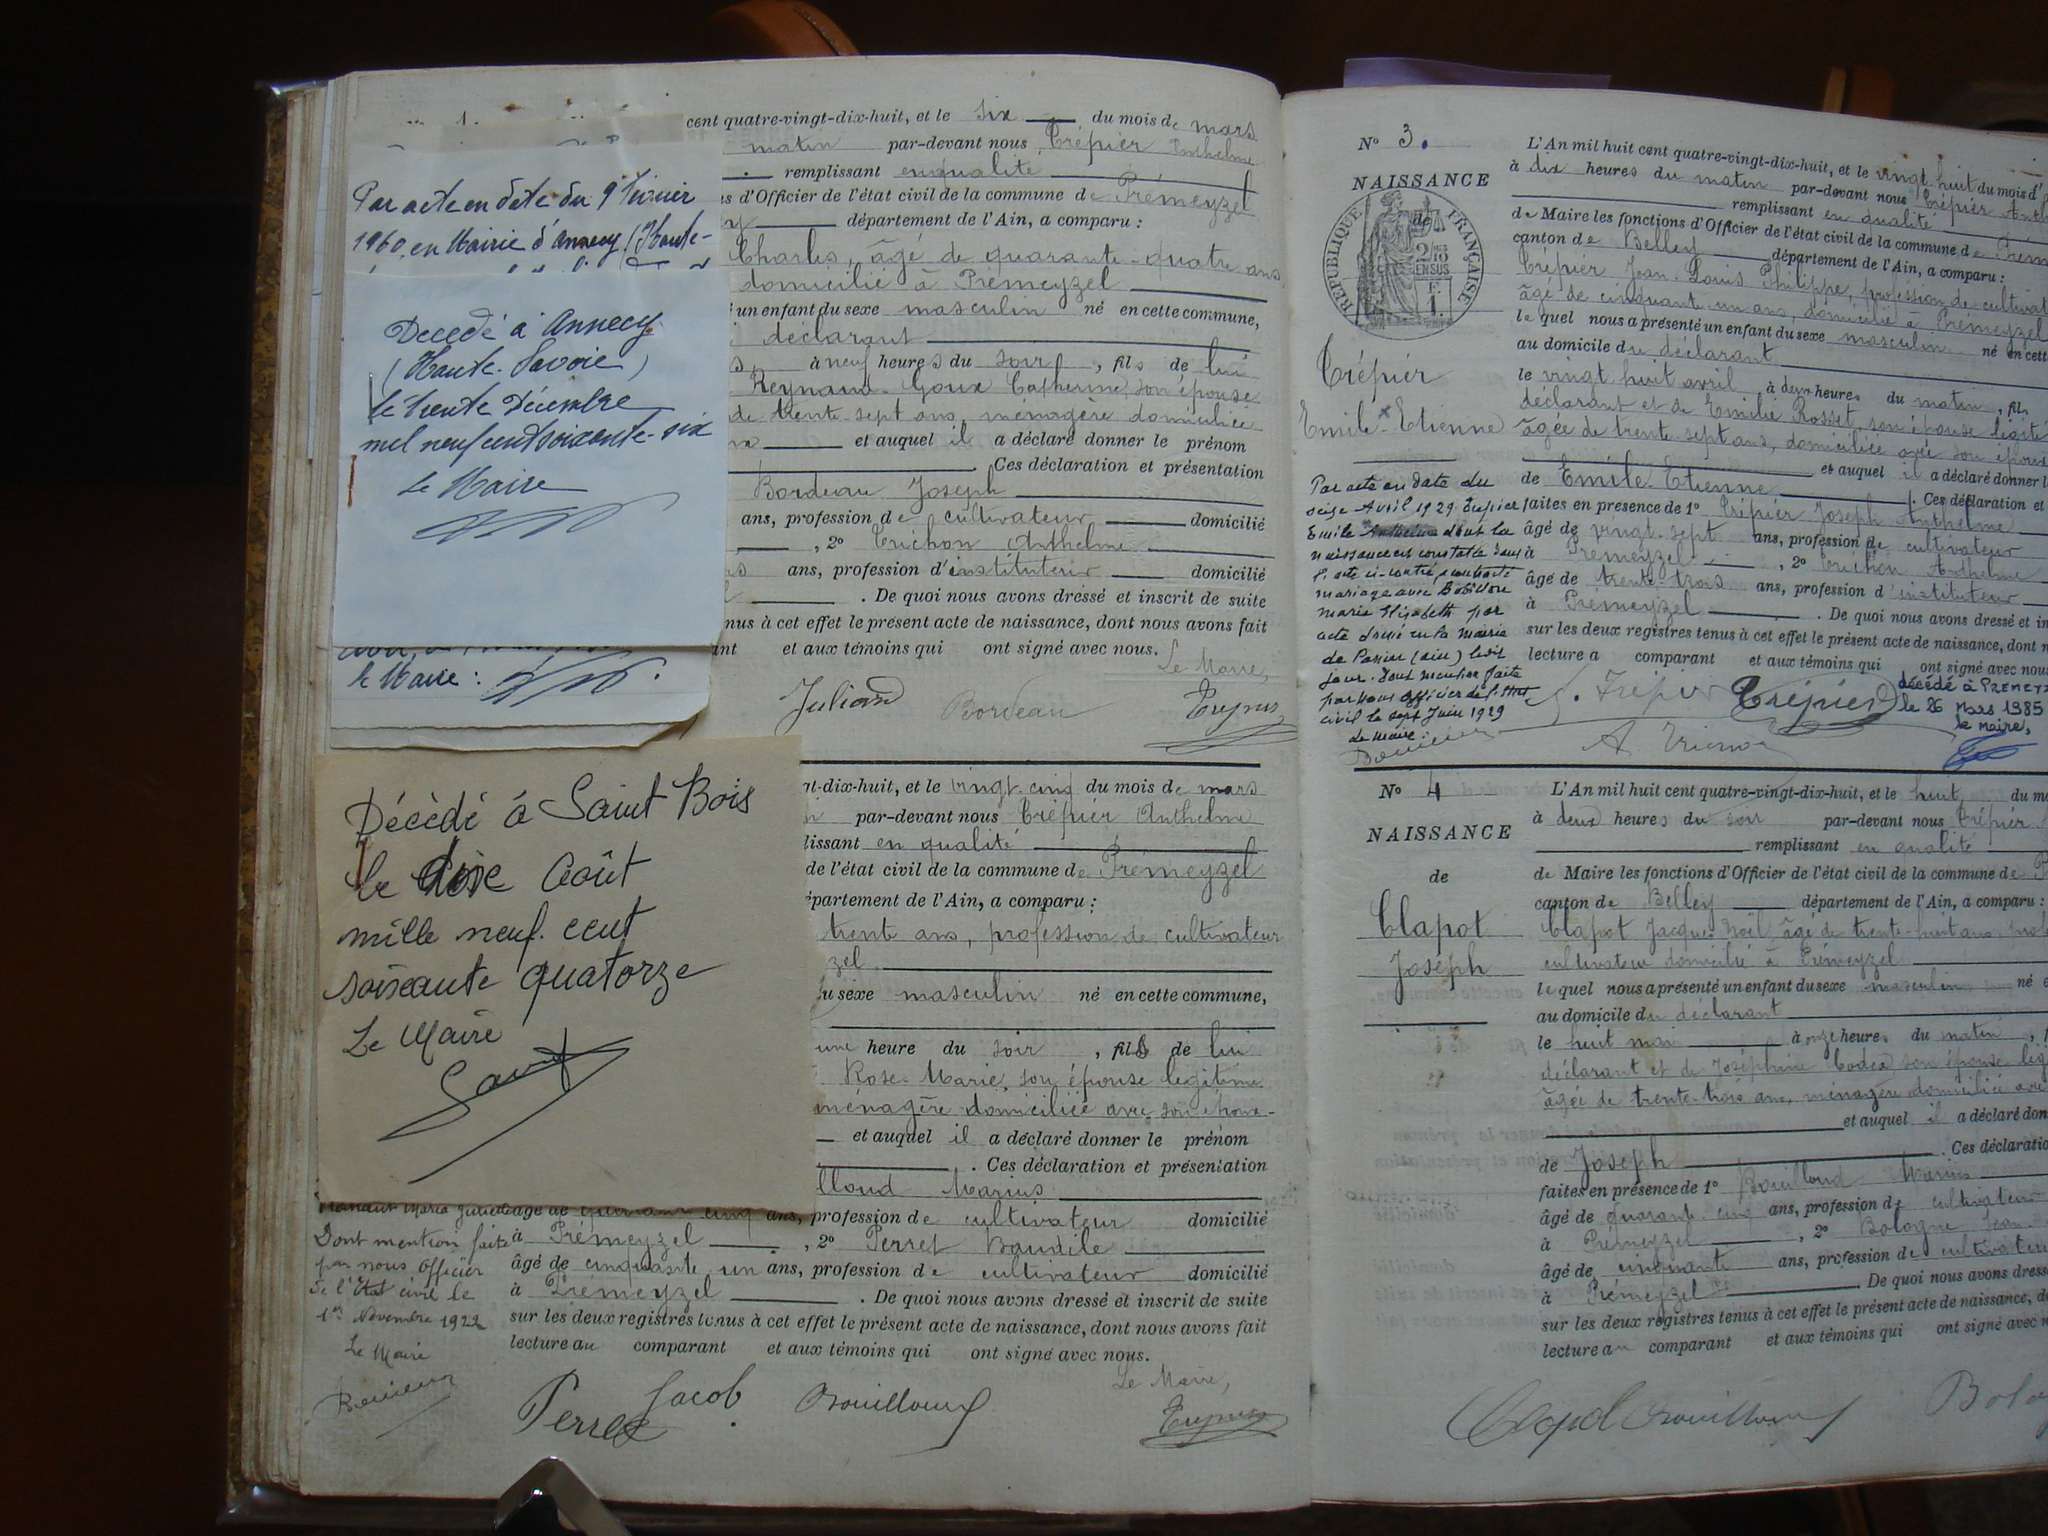 Par acte en date du 9 Février
1960 en Mairie d'Annecy (Haute-
Décédé à Annecy
(Haute-Savoie)
le trente Décembre
mil neuf cent soixante-six
Le Maire
le Maire :
Décèdé á Saint Bois
le Août
mille neuf. cent
soixante quatorze
Le Maire
cent quatre-vingt-dix-huit, et le six du mois de mars
matin par-devant nous Crépier Anthelme
remplissant en qualité
s d'Officier de l'état civil de la commune de Prémeyzel
département de l'Ain, a comparu :
Charles, âgé de quarante-quatre ans
domicilié à Prémeyzel
un enfant du sexe masculin né en cette commune,
déclarant
à neuf heures du soir, fils de lui
Catherine, son épouse
de trente-sept ans, ménagère domiciliée
et auquel il a déclaré donner le prénom
. Ces déclaration et présentation
Bordeau Joseph
ans, profession de cultivateur domicilié
, 2° Trichon Anthelme
ans, profession d'instituteur domicilié
. De quoi nous avons dressé et inscrit de suite
nus à cet effet le présent acte de naissance, dont nous avons fait
ant et aux témoins qui ont signé avec nous.
Le Maire,
Juliand Bordeau
gt-dix-huit, et le vingt-cinq du mois de mars
par-devant nous Crépier Anthelme
lissant en qualité
de l'état civil de la commune de Prémeyzel
épartement de l'Ain, a comparu :
trent ans, profession de cultivateur
zel
u sexe masculin né en cette commune,
une heure du soir, fils de lui
Rose-Marie, son épouse légitime
ménagère domiciliée avec son époux-
et auquel il a déclaré donner le prénom
. Ces déclaration et présentation
lloud Marius
Maria âgé de quarante cinq ans, profession de cultivateur domicilié
Dont mention faite
par nous Officier
de l'état civil le
1er Novembre 1922
Le Maire
à Prémeyzel, 2° Perret Baudile
âgé de cinquante un ans, profession de cultivateur domicilié
à Prémeyzel . De quoi nous avons dressé et inscrit de suite
sur les deux registres tenus à cet effet le présent acte de naissance, dont nous avons fait
lecture au comparant et aux témoins qui ont signé avec nous.
Le Maire,
Perret Jacob Bouilloud
N° 3.
NAISSANCE
de
RÉPUBLIQUE FRANÇAISE
Crépier
Emile-Etienne
Par acte en date du
seize Avril 1929 Crépier
Emile dont la
naissance est constatée dans
l'acte ci-contre a contracté
mariage avec
Marie Elisabeth par
acte dressé en la mairie
de (Ain) ledit
jour. Dont mention faite
par nous officier de l'état
civil le sept Juin 1929
Le Maire
L'An mil huit cent quatre-vingt-dix-huit, et le vingt huit du mois d'
à dix heures du matin par-devant nous Crépier Anth
remplissant en qualité
de Maire les fonctions d'Officier de l'état civil de la commune de Prém
canton de Belley département de l'Ain, a comparu :
Crépier Jean-Louis Philippe, profession de cultivat
âgé de cinquante-un ans, domicilié à Prémeyzel
le quel nous a présenté un enfant du sexe masculin né en cett
au domicile du déclarant
le vingt huit avril, à deux heures du matin, fils
déclarant et de Emilie Rosset, son épouse légiti
âgée de trente-sept ans, domiciliée avec son époux
et auquel il a déclaré donner l
de Emile-Etienne . Ces déclaration et
faites en présence de 1° Crépier Joseph Anthelme
âgé de vingt-sept ans, profession de cultivateur
à Prémeyzel, 2° Trichon Anthelme
âgé de trente-trois ans, profession d'instituteur
à Prémeyzel . De quoi nous avons dressé et in
sur les deux registres tenus à cet effet le présent acte de naissance, dont n
lecture a comparant et aux témoins qui ont signé avec nous
décédé à PREMEYZ
le 26 Mars 1985
le maire,
Crépier
N° 4
NAISSANCE
de
Clapot
Joseph
L'An mil huit cent quatre-vingt-dix-huit, et le huit du m
à deux heures du soir par-devant nous Crépier
remplissant en qualité
de Maire les fonctions d'Officier de l'état civil de la commune de P
canton de Belley département de l'Ain, a comparu :
Clapot Jacques Noël âgé de trente-huit ans, prof
cultivateur domicilié à Prémeyzel
le quel nous a présenté un enfant du sexe masculin né e
au domicile du déclarant
le huit mai à onze heures du matin,
déclarant et de Joséphine son épouse légi
âgée de trente-trois ans, ménagère domiciliée ave
et auquel il a déclaré don
de Joseph . Ces déclaratio
faites en présence de 1° Bouilloud Marius
âgé de quarante-cinq ans, profession de cultivateur
à Prémeyzel, 2° Bologne Jean
âgé de cinquante ans, profession de cultivateur
à Prémeyzel . De quoi nous avons dress
sur les deux registres tenus à cet effet le présent acte de naissance, d
lecture au comparant et aux témoins qui ont signé avec n
Clapot Bouilloud Bolo